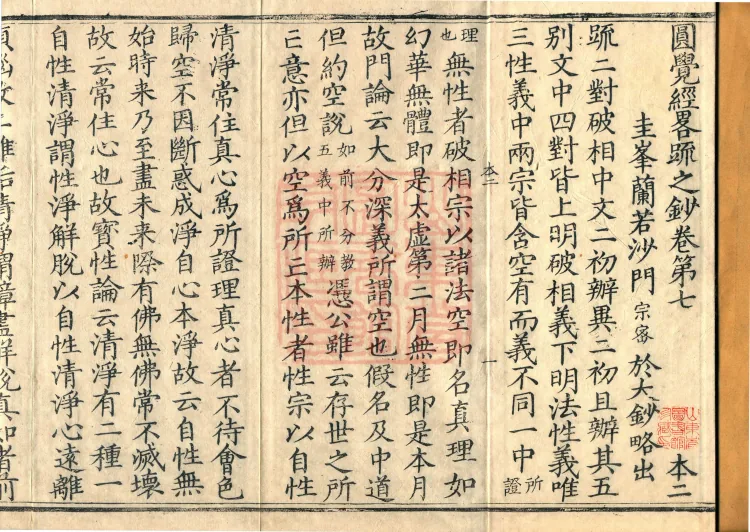 圓覺經畧䟽之鈔卷第七　本二
圭峯蘭若沙門宗密於大鈔略出
䟽二對破相中文二初辦異二初且辦其五
別文中四對皆上明破相義下明法性義唯
三性義中兩宗皆含空有而義不同一中所證
本二　一
理也無性者破相宗以諸法空即名真理如
幻華無體即是太虛第二月無性即是本月
故門論云大分深義所謂空也假名及中道
但約空說如前不分教五義中所辦憑公雖云存世之所
亡意亦但以空為所亡本性者性宗以自性
清淨常住真心為所證理真心者不待會色
歸空不因斷惑成淨自心本淨故云自性無
始時来乃至盡未来際有佛無佛常不滅壞
故云常住心也故寶性論云清淨有二種一
自性清淨謂性淨解脫以自性清淨心遠離